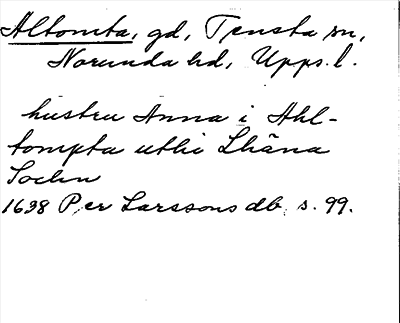 Altomta, gd, Tensta sn,
Norunda hd, Upps. l.
hustru Anna i Ahl-
tompta uthi Lhäna
Sochn
1638 Per Larssons db. s. 99.